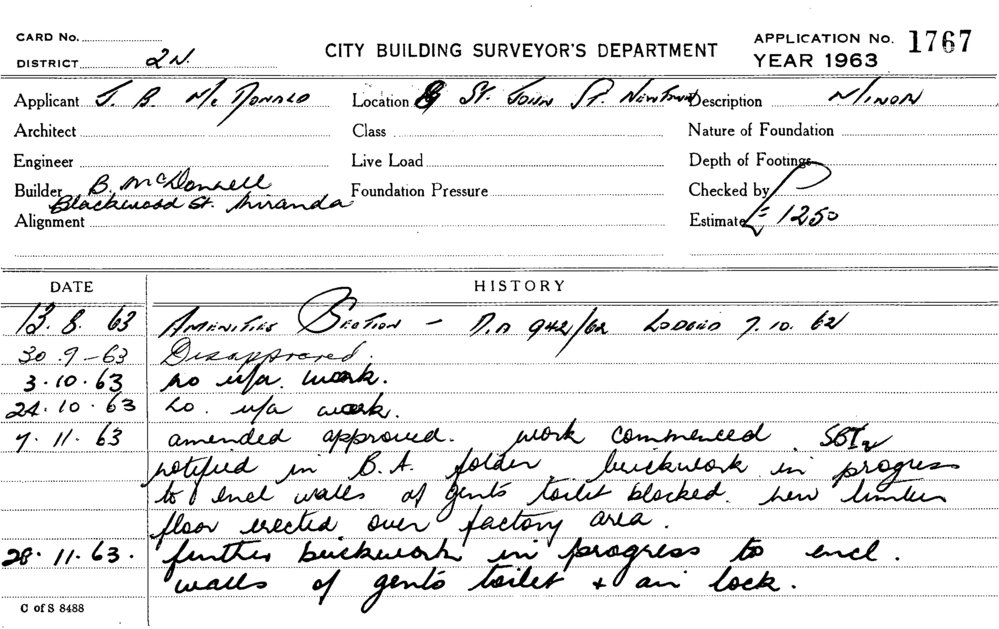 CARD No.
DISTRICT 2N.
CITY BUILDING SURVEYOR'S DEPARTMENT
APPLICATION No. 1767
YEAR 1963
Applicant J. B. McDonald Location St. John St. Newtown Description Minor
Architect Class Nature of Foundation
Engineer Live Load Depth of Footings
Builder B. McDonnell Foundation Pressure Checked by
Blackwood St. Miranda
Alignment Estimate £ 1250
DATE HISTORY
13. 8. 63 Amenities Section - D.A 942/62 Lodged 7.10.62
30.9-63 Disapproved.
3.10.63 no u/a. work.
24.10.63 no. u/a work.
7.11.63 amended approved. work commenced
notified in B.A. folder brickwork in progress
to encl walls of gents toilet blocked. new timber
floor erected over factory area.
28.11.63. further brickwork in progress to encl.
walls of gents toilet + air lock.
C of S 8488